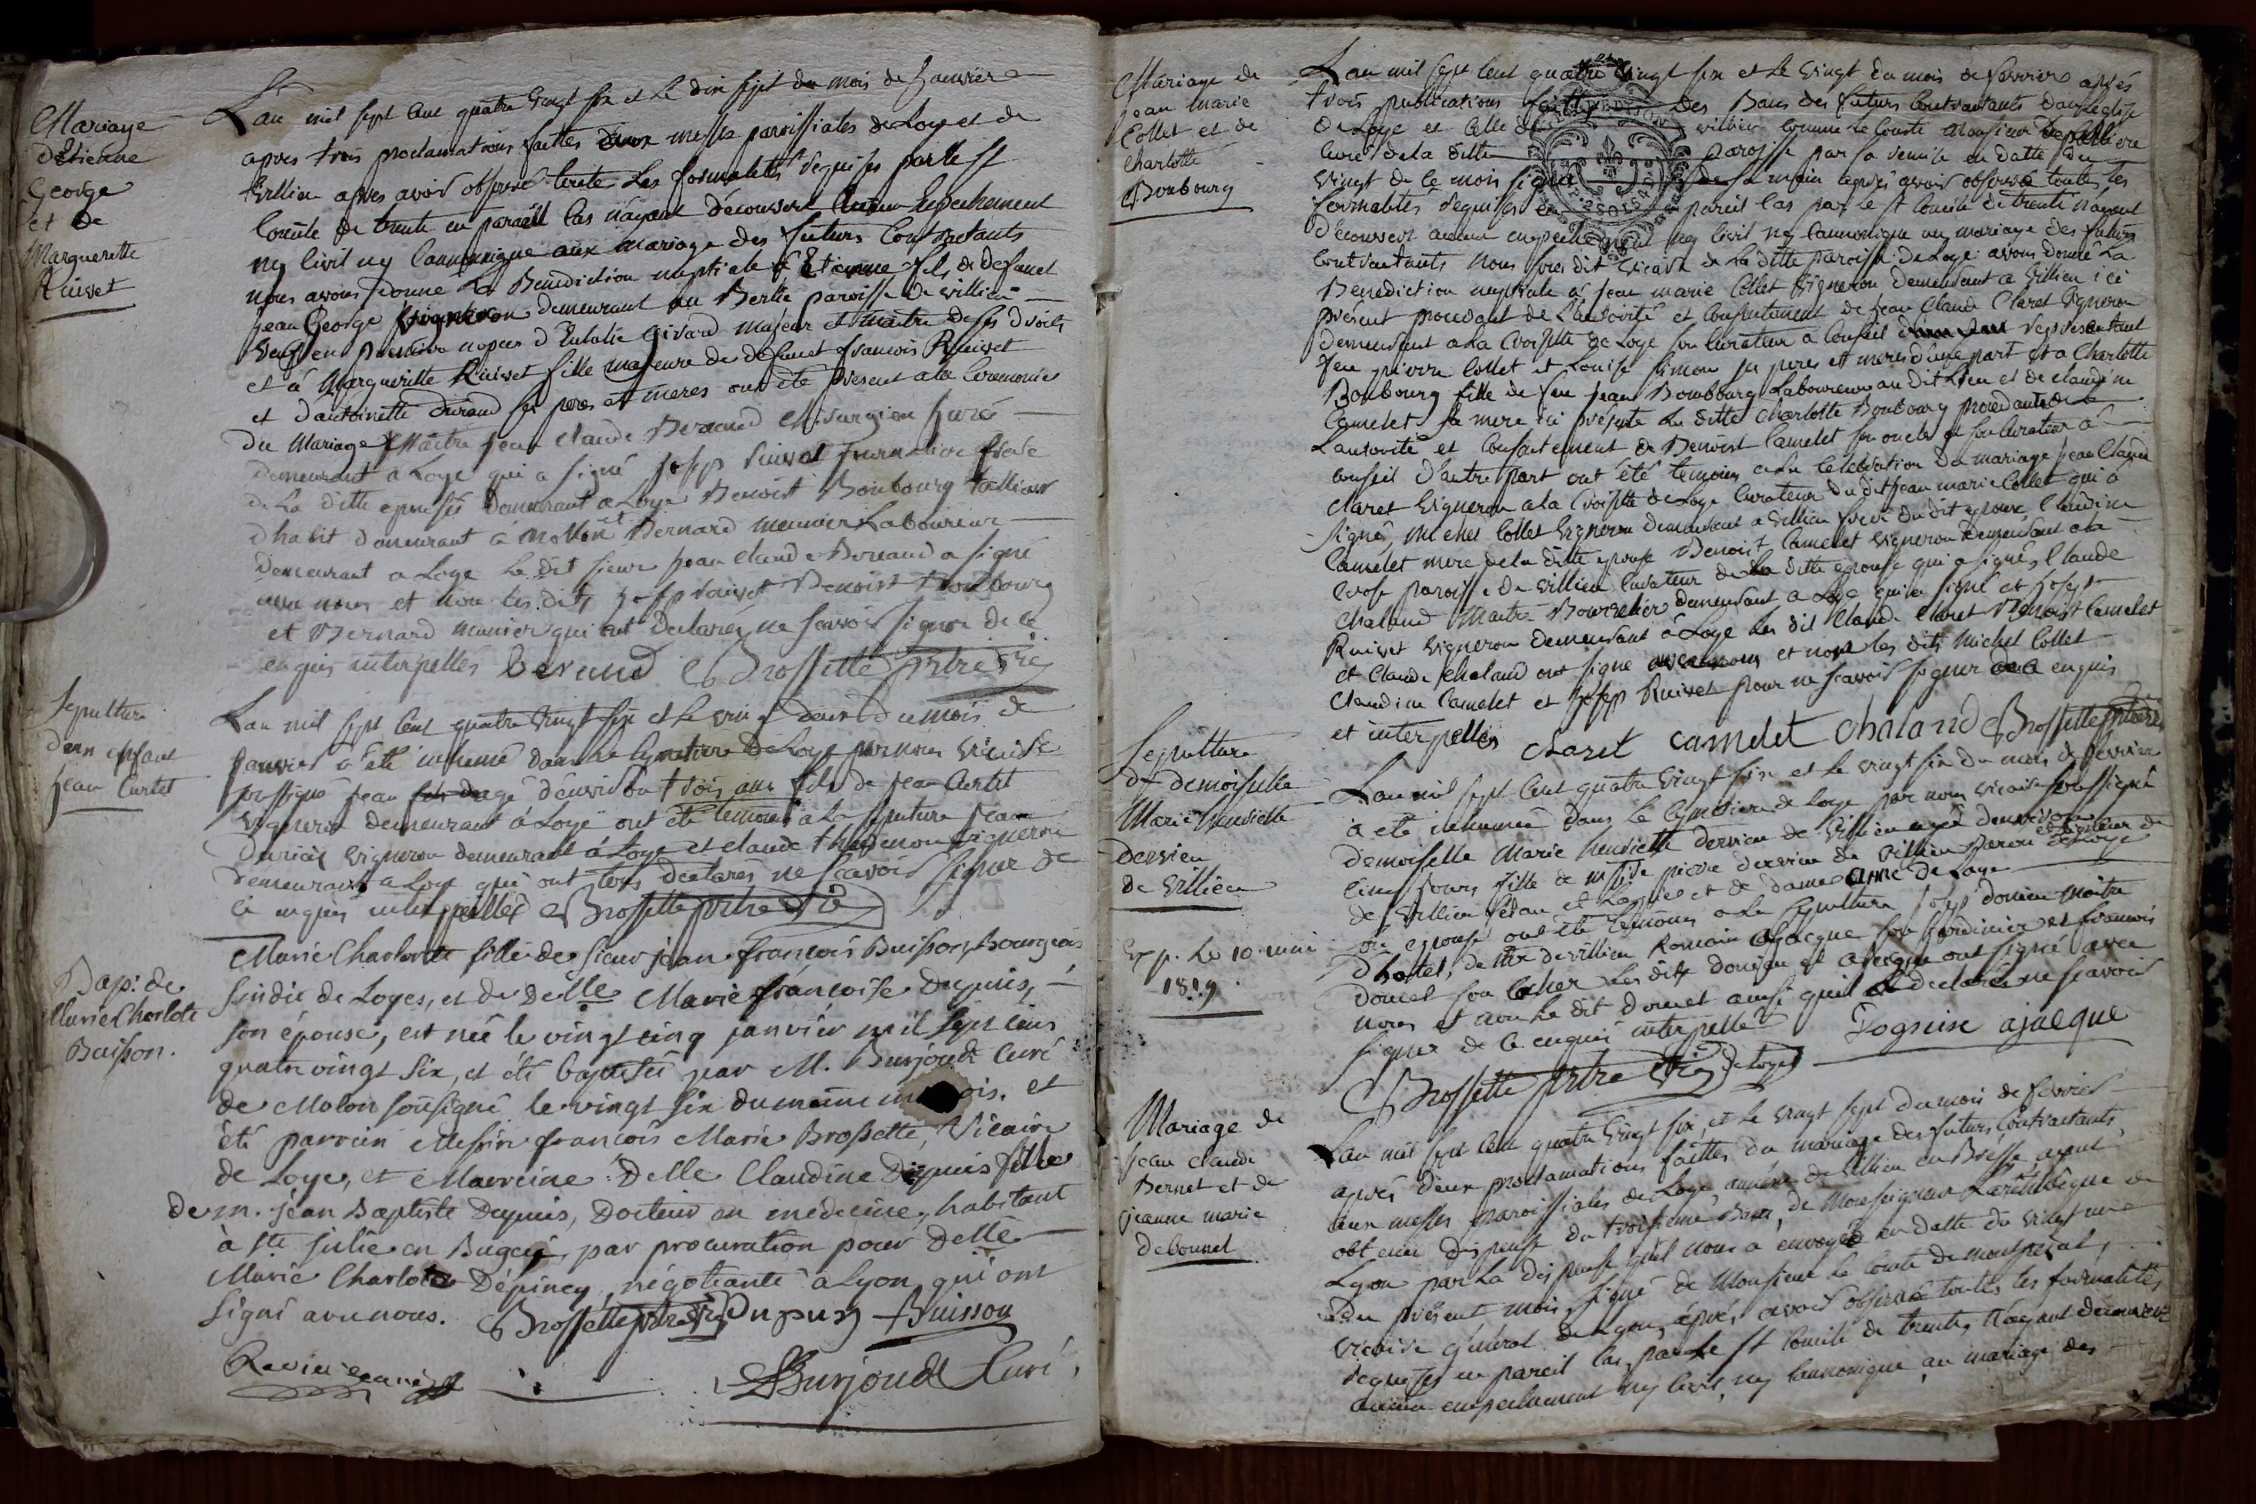 Mariage
d'Etienne
George
et de
Marguerette
Ruivet
L'an mil sept cent quatre vingt six et le dix sept du mois de Janvier
apres trois proclamations faittes aux messes paroissiales de Loye et de
Villieu apres avoir observé toute les formalités requises par le st
Concile de trente en pareill cas n'ayant decouvert aucun Empechement
ny Civil ny Cannonique aux mariage des futurs Contractants
nous avons donne La Benediction nuptiale a Etienne fils de defunct
Jean George vigneron demeurant au Bertie paroisse de villieu
veuf en premiere nopces d'Eulalie Girard majeur et maitre de ses droits
et à Marguerette Ruivet fille majeure de defunct francois Ruivet
et d'antoinette durand ses peres et meres ont été present a la Ceremonie
du Mariage Maitre Jean Claude Beraud Chirurgien Juré
demeurant a Loye qui a signé Josep Ruivet frere
de La ditte epousée demeurant a Loye Benoist Bonbourg tallieur
d'habit demeurant à mollon et Bernard meunier Laboureur
demeurant a Loye Le dit sieur Jean Claude Beraud a signé
avec nous et non les dits Josep ruivet Benoist Bonbourg
et Bernard Munier qui ont declarés ne scavoir signer de ce
enquis interpellés Beraud Brossette prtre vic
Sepulture
d'un enfant
Jean Curtet
L'an mil sept cent quatre vingt six et le vingt deux du mois de
Janvier a été inhumé dans Le Cymetiere de Loye par nous vicaire
soussigné Jean agé d'environ trois ans fils de Jean Curtet
vigneron demeurant à Loye ont été temoins a La sepulture Jean
vigneron demeurant à Loye et claude thevenon vigneron
demeurant a Loye qui ont tous declarés ne scavoir signer de
ce enquis interpellés Brossette prtre vic
Bap: de
Marie Charlote
Buisson.
Marie Charlotte fille de Sieur jean francois Buisson, Bourgeois
Sindic de Loyes, et de Delle Marie françoise Dupuis,
son épouse, est née le vingt cinq janvier mil sept cens
quatre vingt six, et été baptisée par M. Burjoud curé
de Molon soussigné le vingt six du meme mois. et
été parrein Messire francois Marie Brossette, Vicaire
de Loye, et Marreine Delle Claudine Dupuis fille
de m. jean Baptiste Dupuis, Docteur en medecine, habitant
à ste julie en Bugey, par procuration pour Delle
Marie Charlote Dépincy, négotiante a Lyon, qui ont
signé avec nous. Brossette prtre vic Dupuis Buisson
Burjoud Curé
Mariage de
Jean Marie
Collet et de
Charlotte
Bonbourg
L'an mil sept cent quatre vingt six et le vingt du mois de fevrier après
trois publications faittes des Bans des futurs Contractants dans l'eglise
de Loye et celle de villieu comme le Conste Monsieur
Curé de la ditte paroisse par sa remise en datte du
vingt de ce mois signé de sa main apres avoir observé toutes les
formalités requises en pareil cas par le st Concile de trente n'ayant
decouvert aucun empechement ny Civil ny Cannonique au mariage des futurs
Contractants nous sous dit vicaire de La ditte paroisse de Loye avons donné La
Benediction nuptiale a Jean marie Collet vigneron demeurant a villieu ici
present procedant de L'autorité et Consentement de Jean Claude Claret vigneron
demeurant a La Croisette de Loye son Curateur a Conseil representant
feu pierre Collet et Louise simon ses peres et meres d'une part et a Charlotte
Bonbourg fille de feu Jean Bonbourg Laboureur au dit Lieu et de claudine
Camelet sa mere ici présente La ditte Charlotte Bonbourg procedante de
L'autorité et Consentement de Benoist Camelet son oncle et son Curateur à
conseil d'autre part ont été temoins a La Celebration du mariage Jean Claude
Claret vigneron a La Croisette de Loye Curateur du dit Jean marie Collet qui a
signé, Michel Collet vigneron demeurant a villieu frere du dit epoux, Claudine
Camelet mere de La ditte epouse Benoist Camelet vigneron demeurant a La
paroisse de villieu Curateur de La ditte epouse qui a signé, Claude
Chaland Maitre Bourrelier demeurant a Loye qui a signé et Josep
Ruivet vigneron demeurant à Loye Les dit Claude Claret Benoist Camelet
et Claude Chaland ont signe avec nous et non les dits Michel Collet
Claudine Camelet et Josep Ruivet pour ne scavoir signer de ce enquis
et interpellés Claret Camelet Chaland Brossette prtre vic
Sepulture
de demoiselle
Marie henriette
dervieu
de Villieu
Exp. Le 10. mai
1819.
L'an mil sept cent quatre vingt six et le vingt six du mois de fevrier
a été inhumée dans Le Cymetiere de Loye par nous vicaire soussigné
demoiselle Marie henriette dervieu de Villieu agée d'environ
cinq jours fille de messire pierre dervieu de Villieu Baron et seigneur de
de Villieu et Loyes et de dame anne de Loye
son epouse ont été temoins a La sepulture Josep donien maitre
d'hotel de Mr de villieu Romain ajacque son Jardinier et francois
domet son cocher Les dits donien et ajacque ont signé avec
nous et non Le dit domet ainsi qu'il a declaré ne scavoir
signer de ce enquis interpellé ajacque
Brossette prtre vic de Loyes
Mariage de
Jean claude
Bernet et de
jeanne marie
debonnet
L'an mil sept cent quatre vingt six, et le vingt sept du mois de fevrier
apres deux proclamations faittes du mariage des futurs contractants,
aux messes paroissiales de Loye, annexe de villieu en Bresse, ayant
obtenu dispense du troisieme Bans, de Monseigneur L'archevêque de
Lyon par La dispense qu'il nous a envoyée en datte du vingt un
du présent mois, signé de Monsieur Le Comte de montpezat,
vicaire general de Lyon, apres avoir observé toutes les formalités
requises en pareil cas, par Le st Concile de trente, N'ayant decouvert
aucun empechement ny Civil, ny Cannonique, au mariage des